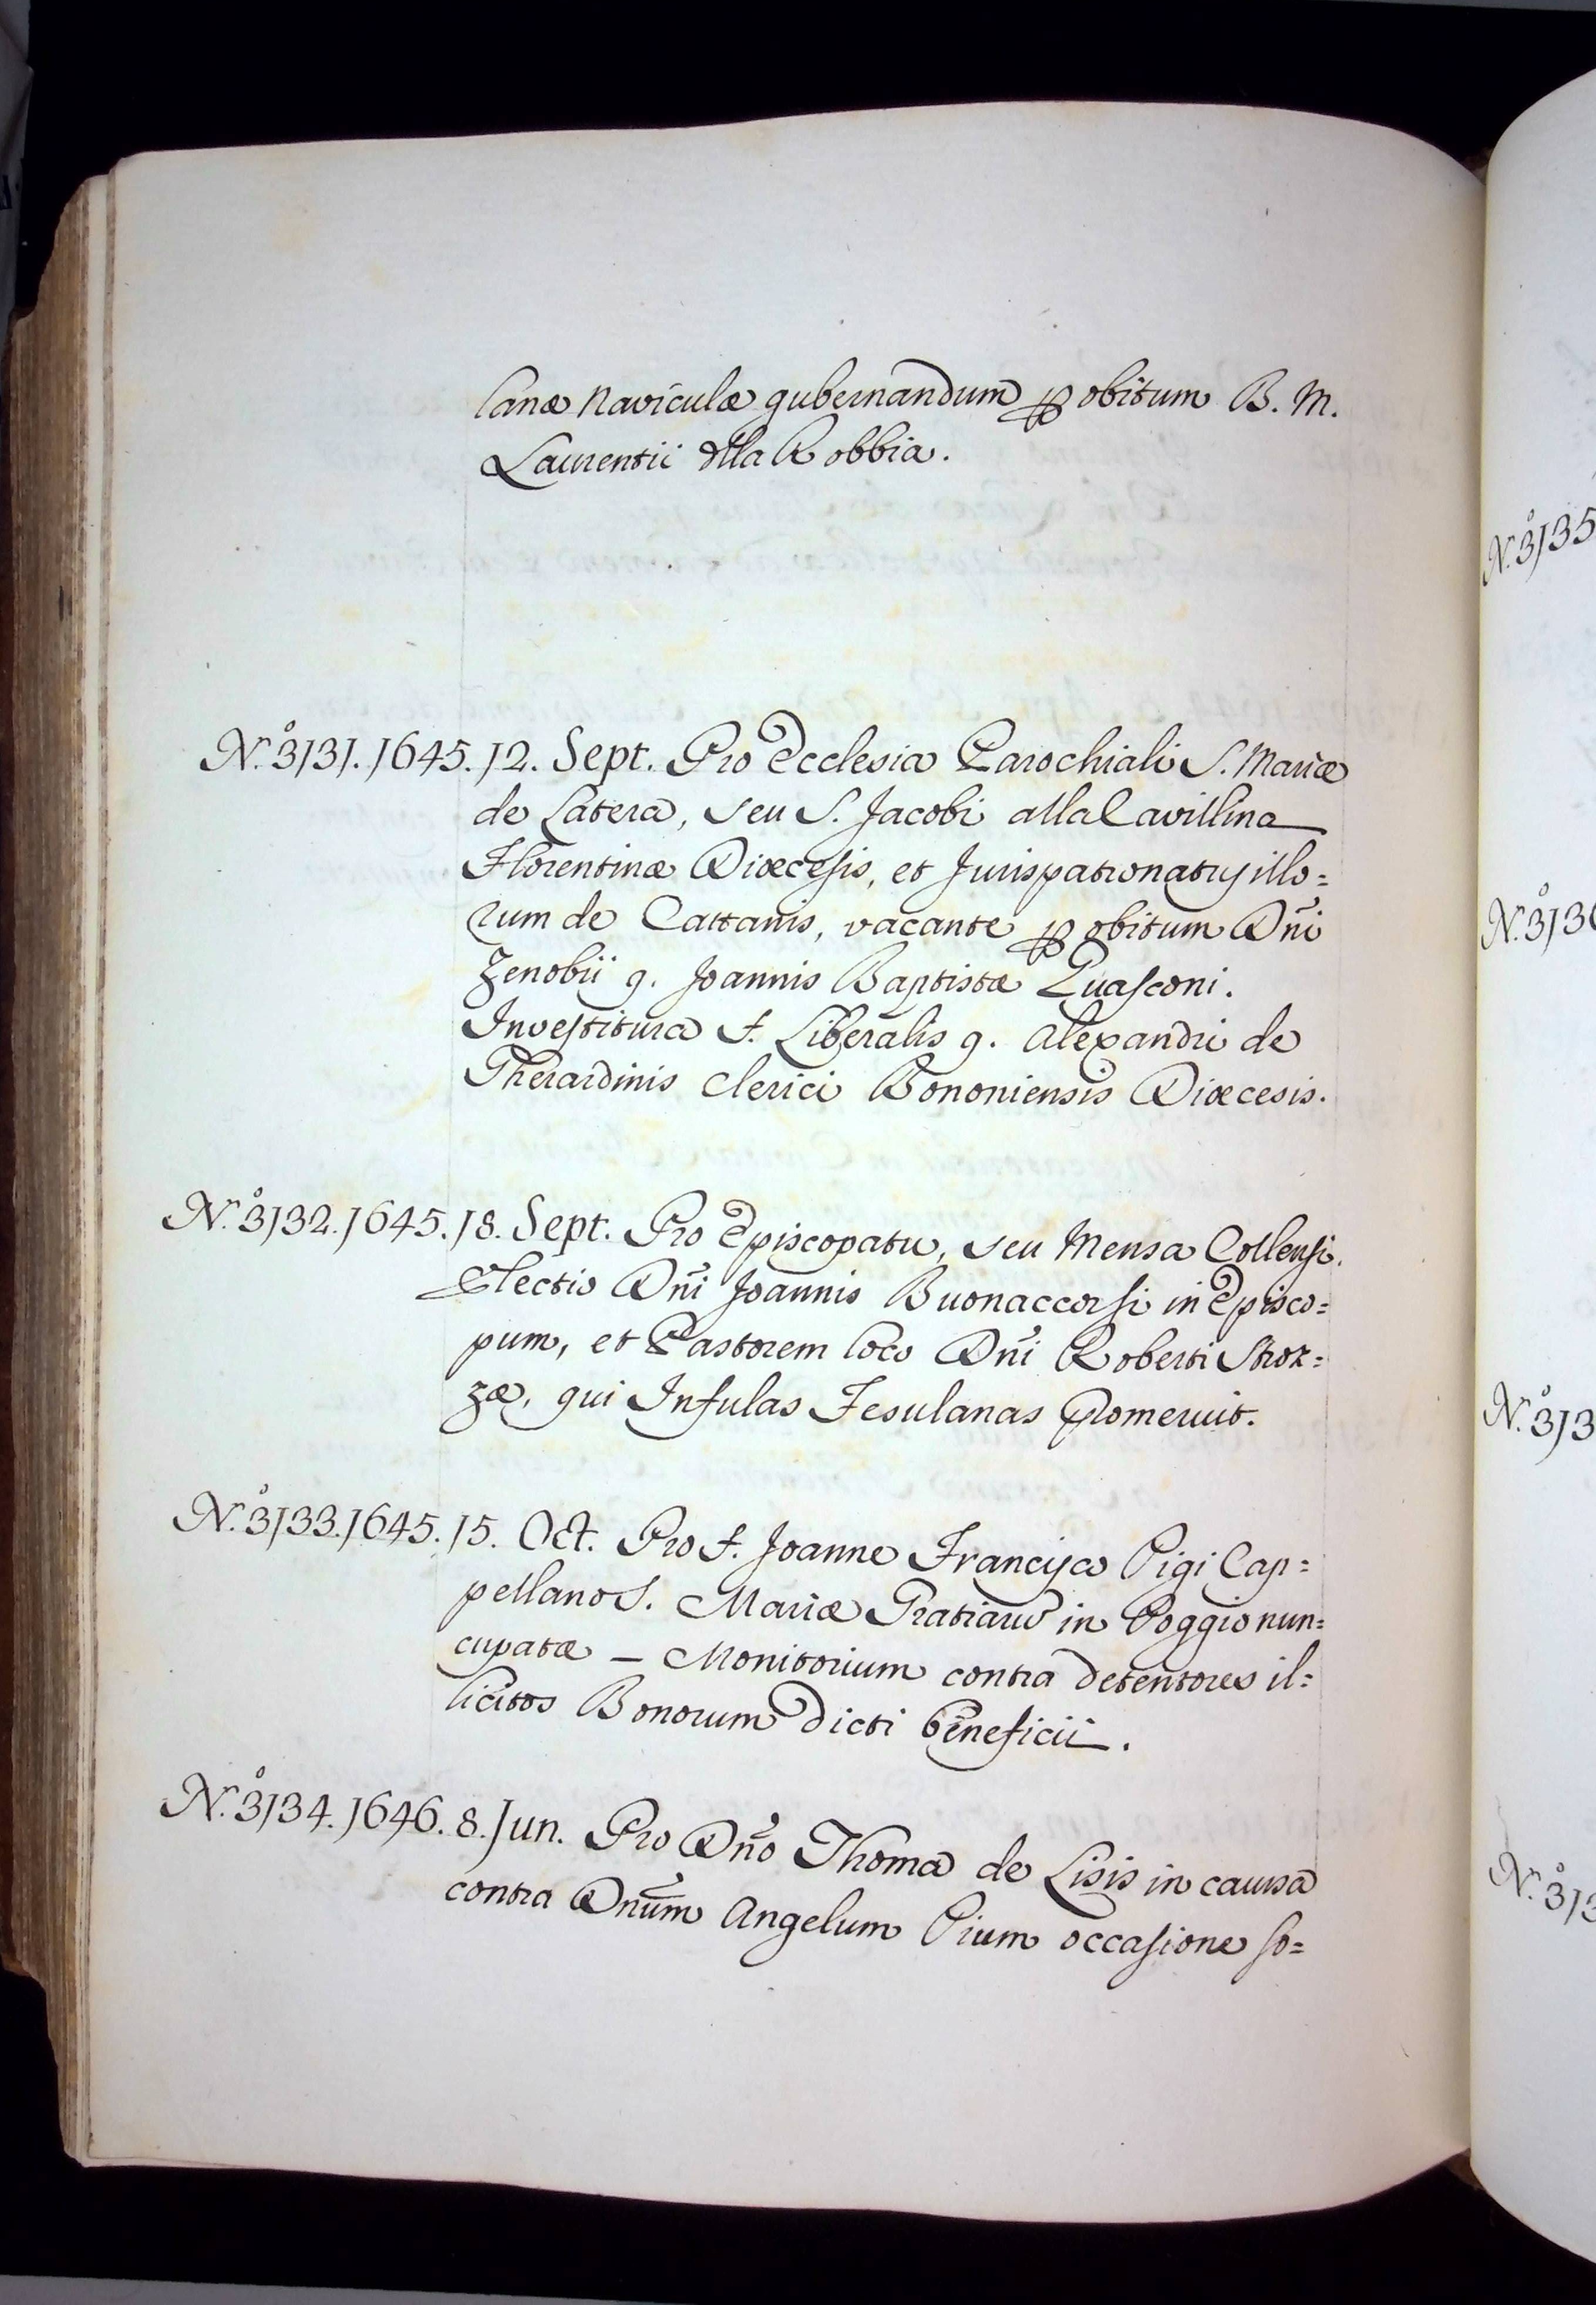 lanæ Naviculæ gubernandum p obitum B. M.
Laurentii dlla Robbia.
N.º 3131. 1645. 12. Sept. Pro Ecclesia Parochiali S. Mariæ
de Latera, seu S. Jacobi alla Cavillina
Florentinæ Diœcesis, et Jurispatronatus illo=
rum de Cattanis, vacante p obitum Dñi
Zenobii q. Joannis Baptistæ Guasconi.
Investitura f. Liberalis q. Alexandri de
Gherardinis Clerici Bononiensis Diœcesis.
N.º 3132. 1645. 18. Sept. Pro Episcopatu, seu Mensa Collensi.
Electio Dñi Joannis Buonaccorsi in Episco=
pum, et Pastorem loco Dñi Roberti Stroz=
zæ, qui Infulas Fesulanas promeruit.
N.º 3133. 1645. 15. Oct. Pro f. Joanne Francisco Pigi Cap=
pellano S. Mariæ Gratiarũ in Poggio nun=
cupatæ — Monitorium contra detentores il=
licitos Bonorum dicti beneficii.
N.º 3134. 1646. 8. Jun. Pro Dño Thoma de Lisis in causa
contra Dñum Angelum Pium occasione so=
N.º 3135
N.º 313
N.º 313
N.º 313